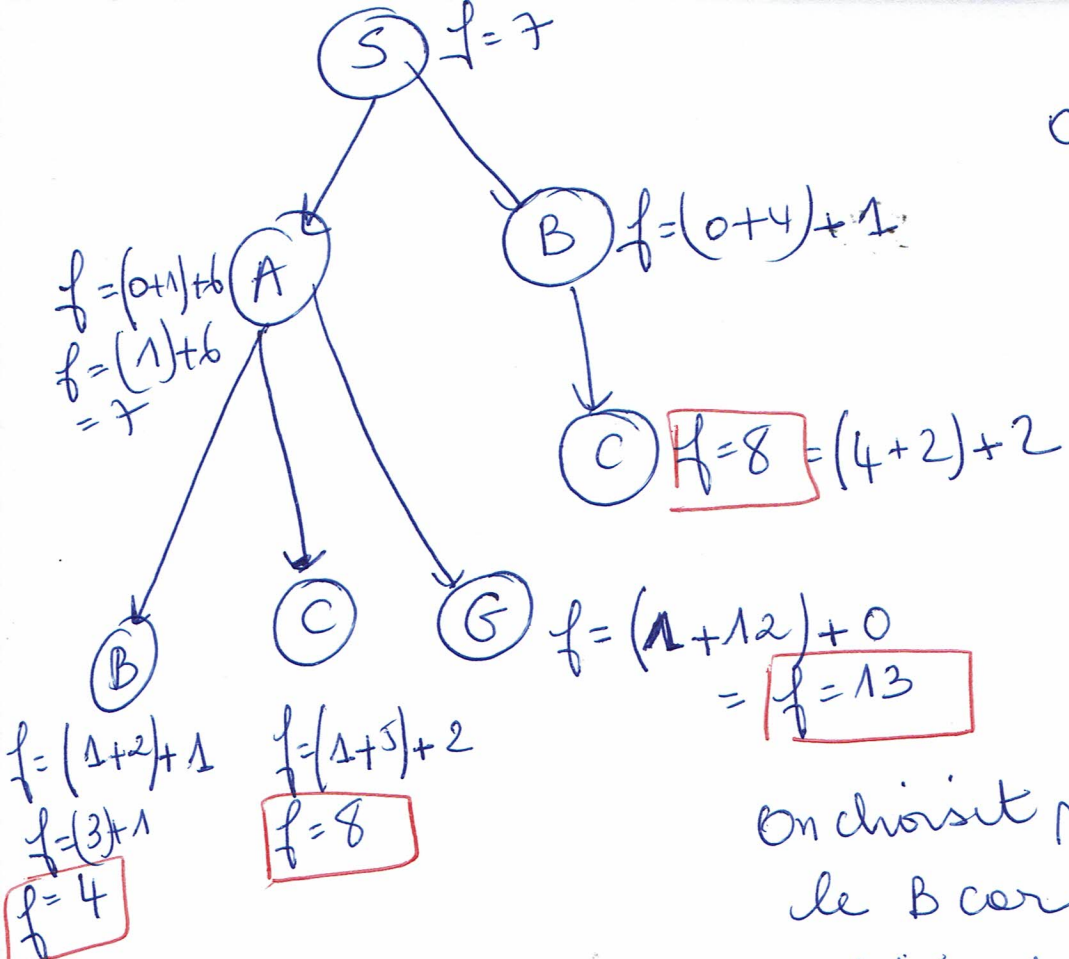 S f=7
B f=(0+4)+1
f=(0+1)+6 A
f=(1)+6
=7
C f=8 =(4+2)+2
B
C
G f=(1+12)+0
= f=13
f=(1+2)+1
f=(3)+1
f=4
f=(1+5)+2
f=8
On choisit
le B car